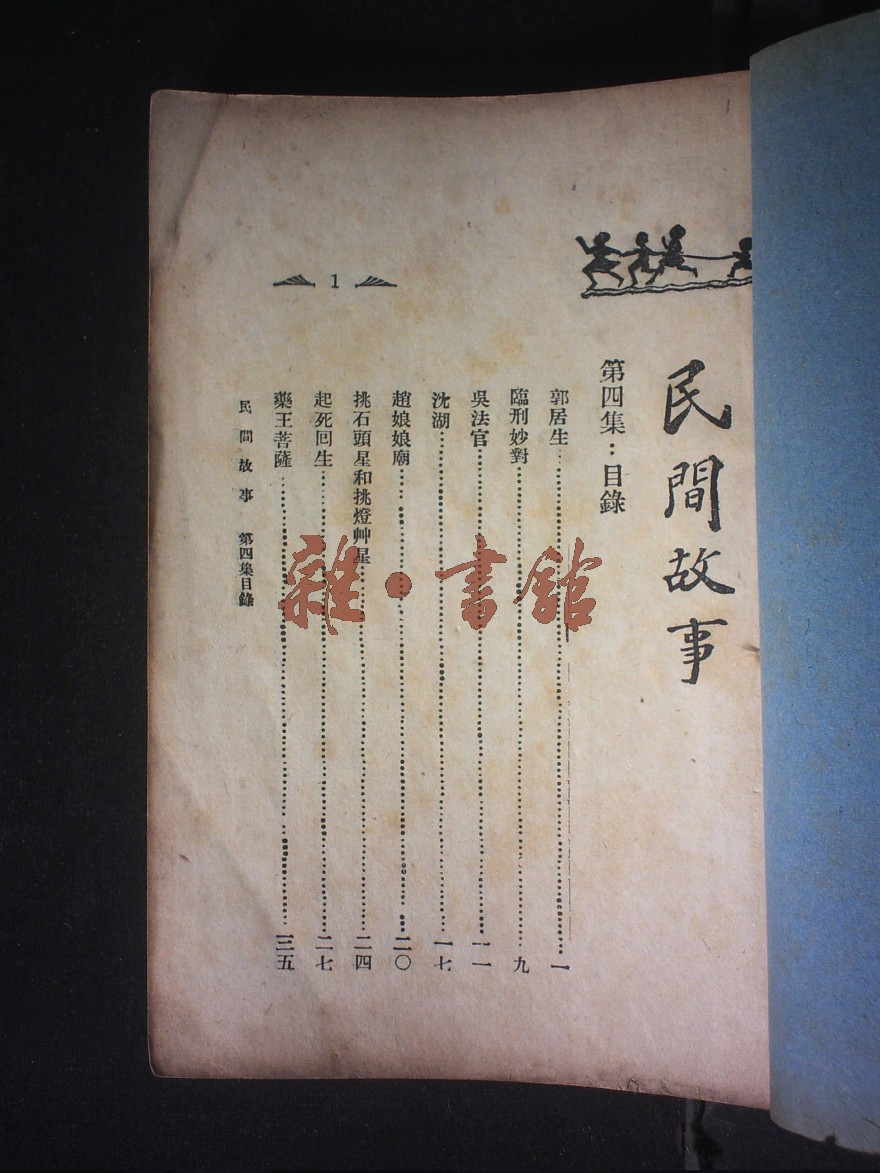 民間故事
第四集：目錄
郭居生……一
臨刑妙對……九
吳法官……一一
沈湖……一七
趙娘娘廟……二〇
挑石頭星和挑燈艸星……二四
起死回生……二七
藥王菩薩……三五
民間故事 第四集目錄
1
雜·書館